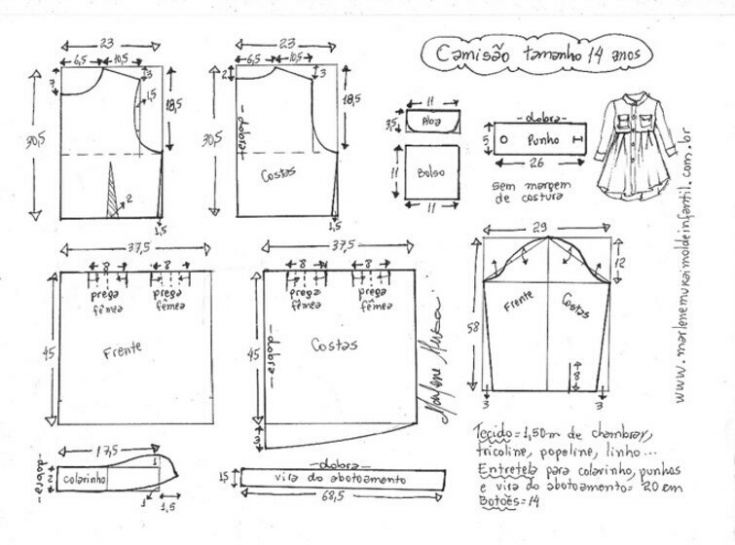 23
6,5
10,5
3
3
1,5
18,5
30,5
2
1,5
23
6,5
10,5
2
3
18,5
30,5
dobra
Costas
1,5
Camisão tamanho 14 anos
11
3,5
Aba
11
Bolso
11
dobra
5
Punho
26
sem margem
de costura
www.marlenemukaimoldeinfantil.com.br
37,5
8
8
prega
fêmea
prega
fêmea
45
Frente
37,5
8
8
prega
fêmea
prega
fêmea
45
Costas
dobra
3
Marlene Mukai
29
12
58
Frente
Costas
8
3
3
17,5
dobra
2
colarinho
1
1
1,5
dobra
1,5
vira do abotoamento
68,5
Tecido = 1,50m de chambray,
tricoline, popeline, linho...
Entretela para colarinho, punhos
e vira do abotoamento = 20 cm
Botões = 14